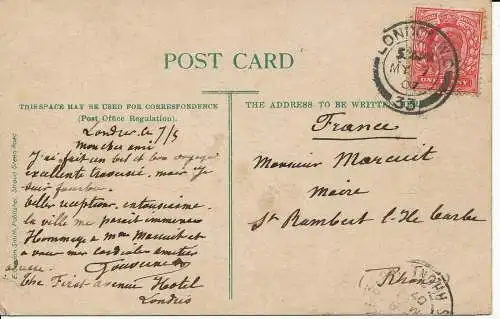 POST CARD
THIS SPACE MAY BE USED FOR CORRESPONDENCE
(Post Office Regulation).
THE ADDRESS TO BE WRITTEN
LONDON W.C
MY 7
07
33
ONE PENNY
Londres le 7/5
Mon cher ami
J'ai fait un bel et bon voyage
excellente traversée mais je
suis
belles réceptions, enthousiasme.
la ville me parait immense
Hommage à Mme Marcuit et
à vous mes cordiales amitiés
adresse
The First Avenue Hotel
Londres
France
Monsieur Marcuit
Maire
St Rambert l'Ile Barbe
Rhône